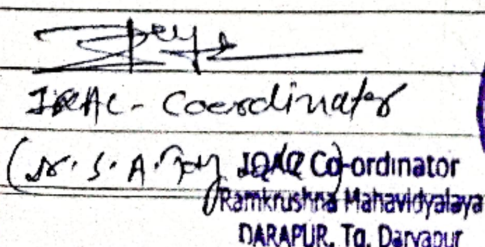 IQAC - Coordinator
(Dr. S. A.
IQAC Co-ordinator
Ramkrushna Mahavidyalaya
DARAPUR, Tq. Daryapur